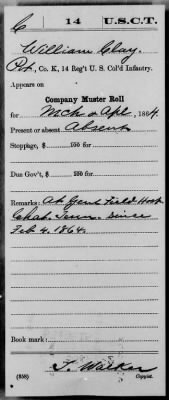 C | 14 | U.S.C.T.
William Clay
Pvt., Co. K, 14 Reg't U. S. Col'd Infantry.
Appears on
Company Muster Roll
for Mch & Apl, 1864.
Present or absent Absent
Stoppage, $ 100 for
Due Gov't, $ 100 for
Remarks: At Genl Field Hosp
Chat. Tenn. since
Feb 4. 1864.
Book mark:
T. Walker
(358) Copyist.